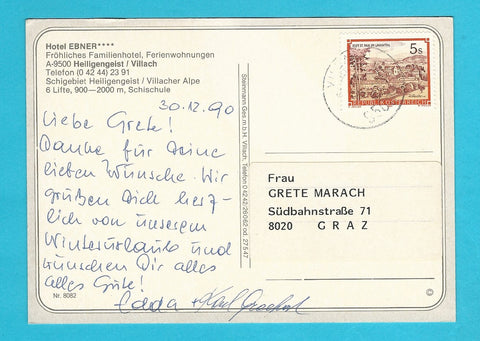 Hotel EBNER****
Fröhliches Familienhotel, Ferienwohnungen
A-9500 Heiligengeist / Villach
Telefon (0 42 44) 23 91
Schigebiet Heiligengeist / Villacher Alpe
6 Lifte, 900—2000 m, Schischule
30.12.90
Liebe Grete!
Danke für Deine
lieben Wünsche. Wir
grüßen Dich herz-
lich von unserem
Winterurlaub und
wünschen Dir alles
alles Gute!
Edda + Karl
Nr. 8082
Steinmann Ges.m.b.H. Villach, Telefon 0 42 42/28 0 62 od. 27 5 47
5s
REPUBLIK ÖSTERREICH
Frau
GRETE MARACH
Südbahnstraße 71
8020 GRAZ
©